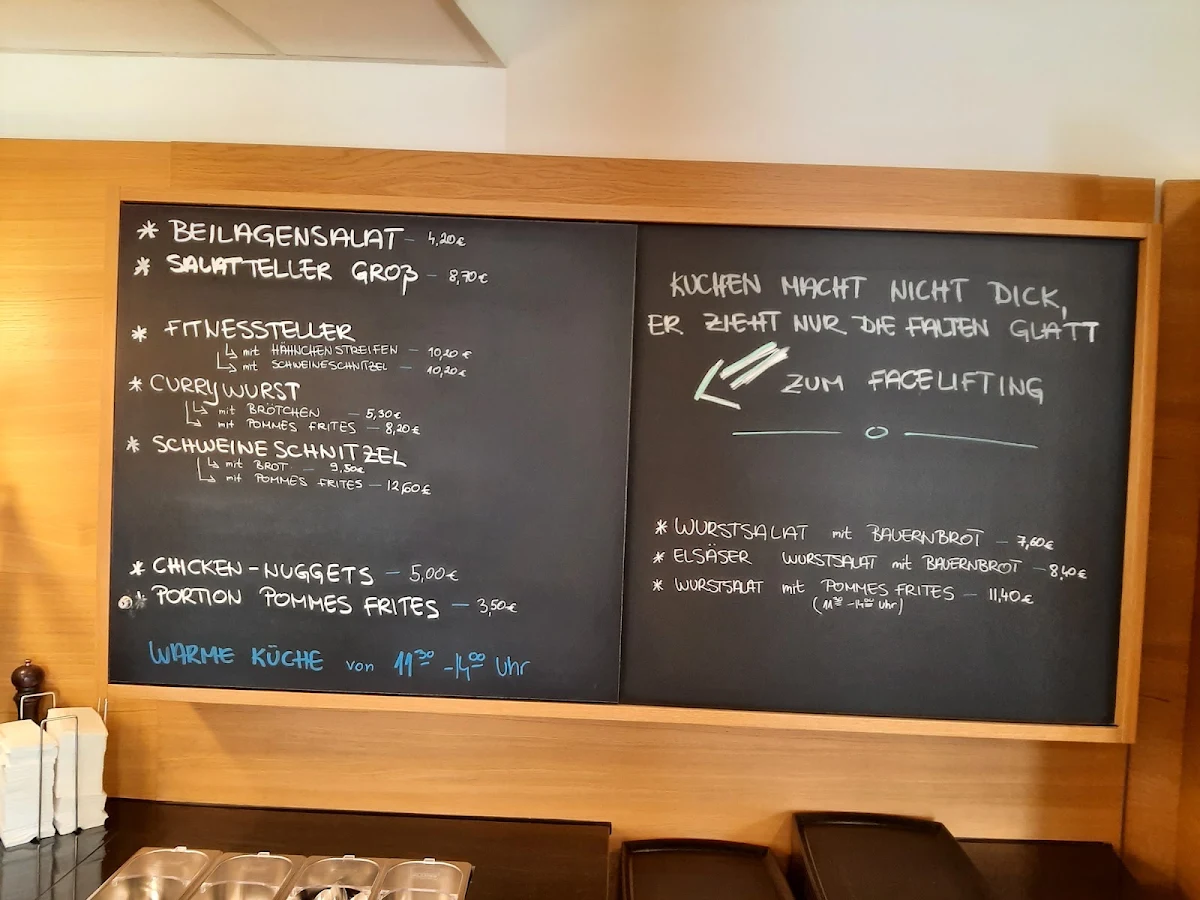 * BEILAGENSALAT – 4,20€
* SALATTELLER GROß – 8,70€
* FITNESSTELLER
↳ mit HÄHNCHENSTREIFEN – 10,20€
↳ mit SCHWEINESCHNITZEL – 10,20€
* CURRYWURST
↳ mit BRÖTCHEN – 5,30€
↳ mit POMMES FRITES – 8,20€
* SCHWEINESCHNITZEL
↳ mit BROT – 9,50€
↳ mit POMMES FRITES – 12,60€
* CHICKEN-NUGGETS – 5,00€
* PORTION POMMES FRITES – 3,50€
WARME KÜCHE von 11³⁰ - 14⁰⁰ Uhr
KUCHEN MACHT NICHT DICK,
ER ZIEHT NUR DIE FALTEN GLATT
ZUM FACELIFTING
* WURSTSALAT mit BAUERNBROT – 7,60€
* ELSÄSER WURSTSALAT mit BAUERNBROT – 8,40€
* WURSTSALAT mit POMMES FRITES – 11,40€
(11³⁰ - 14⁰⁰ Uhr)